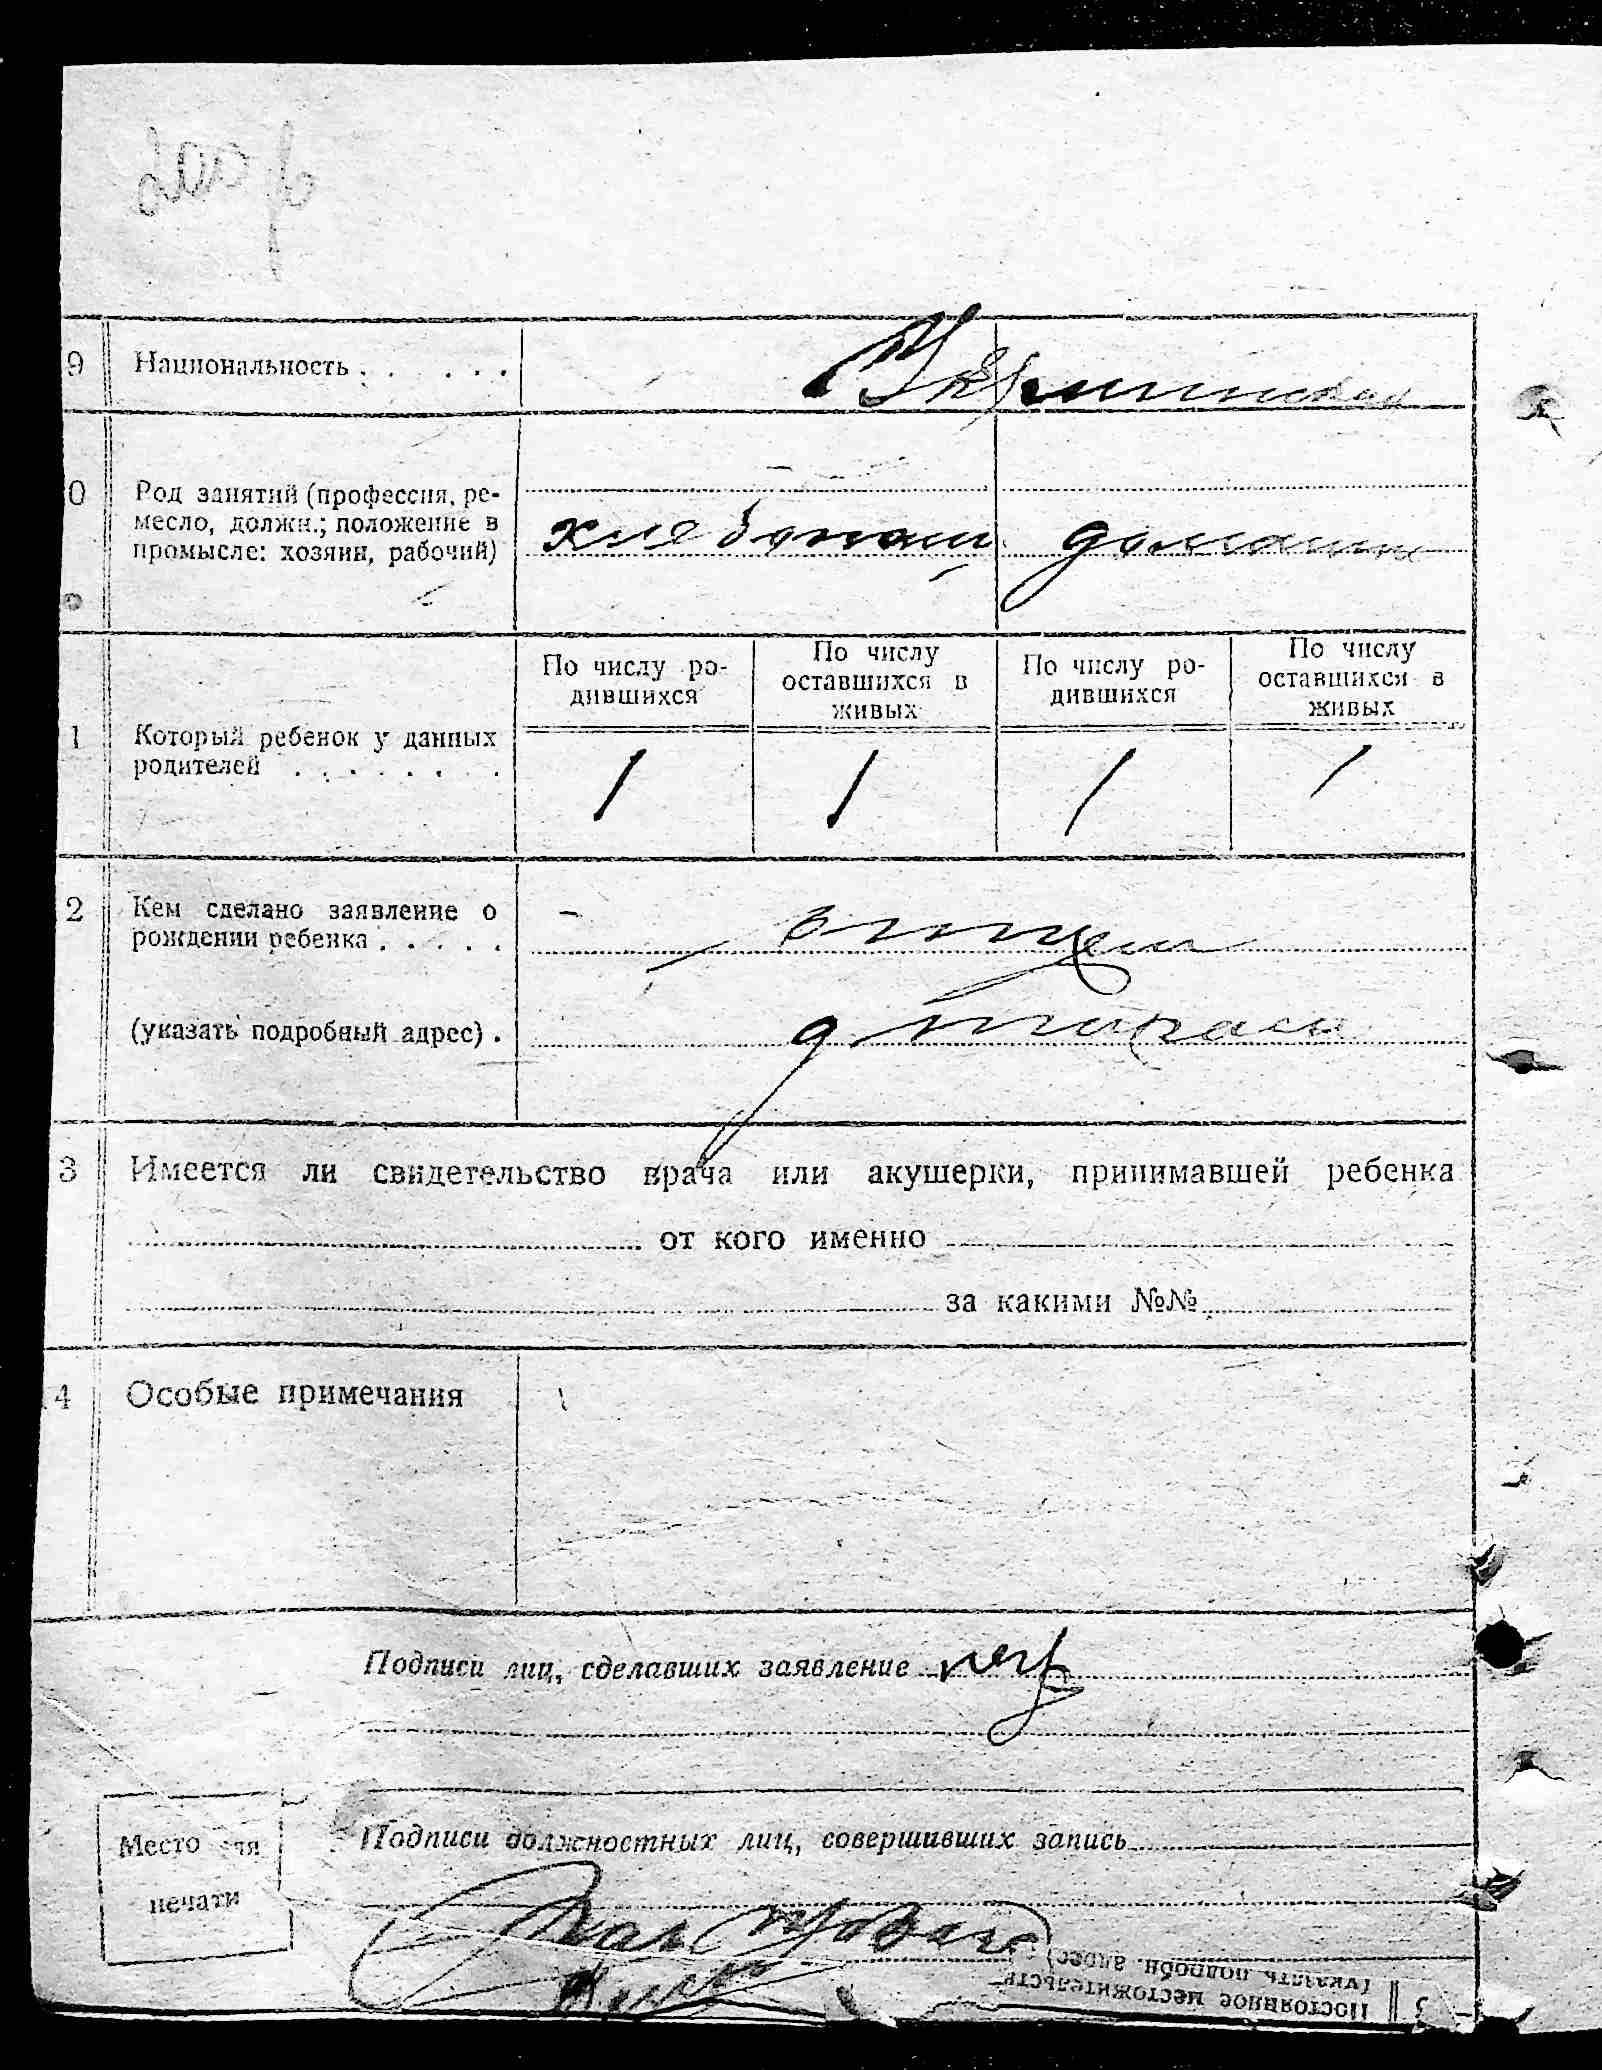 9 Национальность . . . . . . Украинская
0 Род занятий (профессия, ре-
месло, должн.; положение в
промысле: хозяин, рабочий) хлебопаш домашн
1 Который ребенок у данных
родителей . . . . . . .
По числу ро-
дившихся
По числу
оставшихся в
живых
По числу ро-
дившихся
По числу
оставшихся в
живых
1 1 1 1
2 Кем сделано заявление о
рождении ребенка . . . . .
(указать подробный адрес) .
3 Имеется ли свидетельство врача или акушерки, принимавшей ребенка
от кого именно
за какими №№
4 Особые примечания
Подписи лиц, сделавших заявление
Место для
печати
Подписи должностных лиц, совершивших запись
Постоянное местожительств-
(указать подробн. адрес)